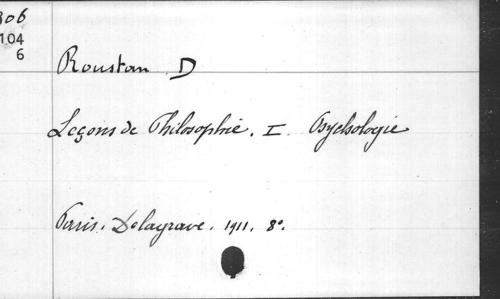 306
104
6
Roustan D
Leçons de Philosophie. I. Psychologie
Paris. Delagrave. 1911. 8º.